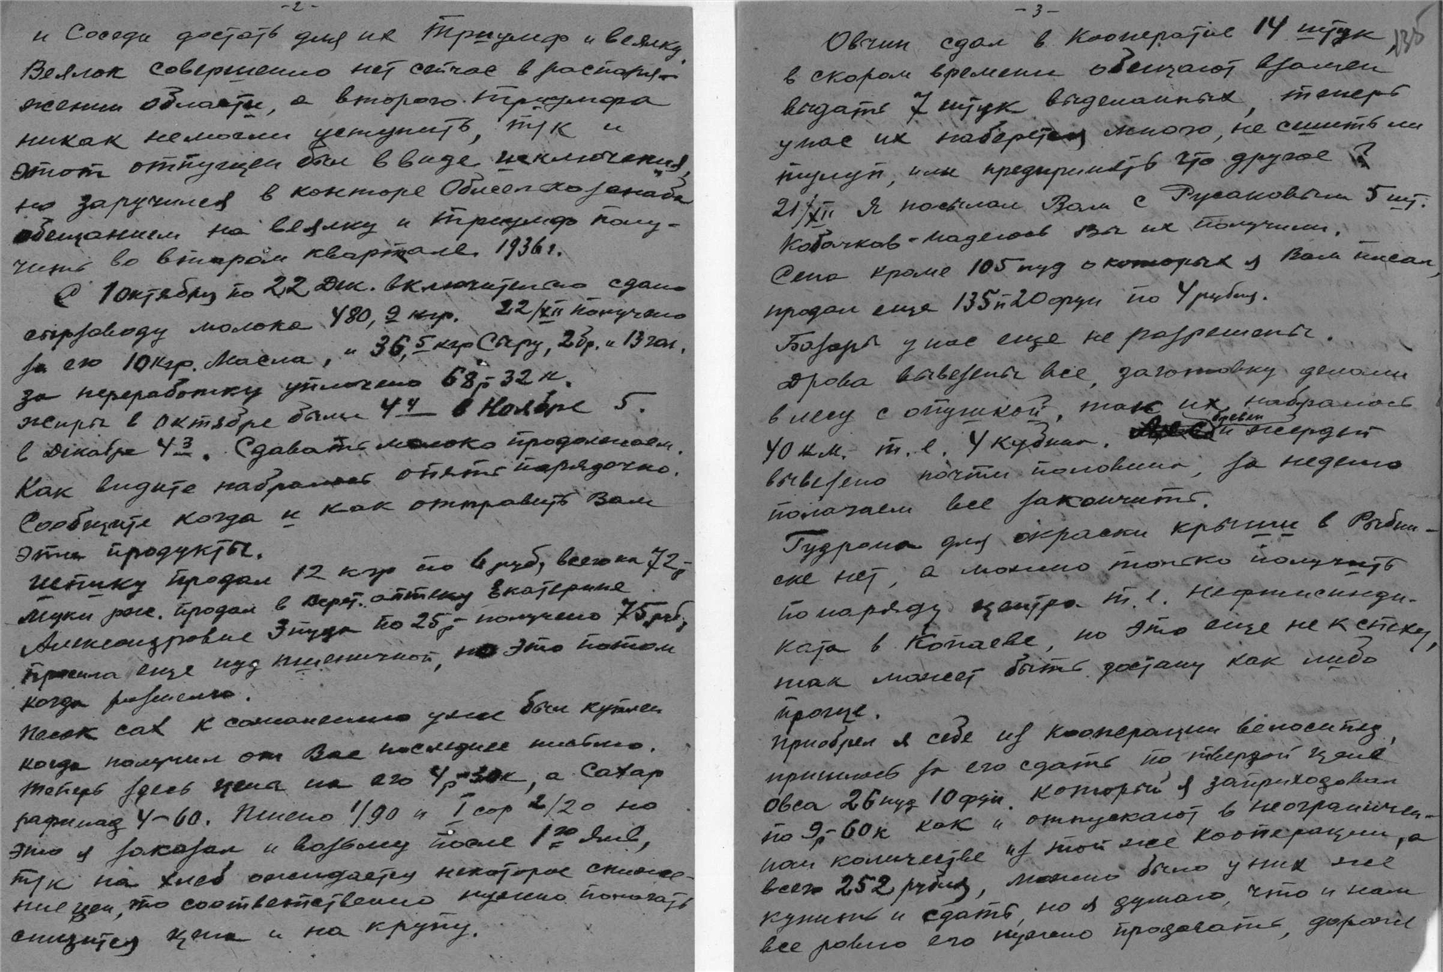 -2-
и Соседи достать для их Триумф и веялку.
Веялок совершенно нет сейчас в распоря-
жении области, а второго Триумфа
никак не могли уступить, т/к и
этот отпущен был в виде исключения,
но заручился в конторе Облсельхозснаба
обещанием на веялку и триумф полу-
чить во втором квартале 1936 г.
С 1 октября по 22 Дек. включительно сдано
сырзаводу молока 480,9 кгр. 22/XII получено
за его 10 кгр. Масла, и 36,5 кгр Сыру, 2 бр. и 13 гол.
за переработку уплочено 68р-32 к.
жиры в октябре были 4 4 в Ноябре 5.
в декабре 4 3. Сдавать молоко продолжаем.
Как видите набралось опять порядочно.
Сообщите когда и как отправить Вам
эти продукты.
продал 12 кгр по 6 руб, всего на 72р
Муки рж. продал в аптеку Екатерине
Александровне 3 пуда по 25р- получено 75 руб,
просила еще пуд пшеничной, но это потом
когда
Песок сах к сожалению уже был куплен
когда получил от Вас последнее письмо.
теперь здесь цена на его 4р-30к, а Сахар
рафинад 4-60. Пшено 1/90 и I сор 2/20 но
это я заказал и возьму после 1го Янв,
т/к на хлеб ожидается некоторое сниже-
ние цен, то соответственно нужно полагать
снизится цена и на крупу.
-3-
135
Овчин сдал в Кооператив 14 штук
в скором времени обещают взамен
выдать 7 штук выделанных, теперь
у нас их наберется много, не сшить ли
тулуп, или предпринять что другое?
21/XII Я послал Вам с Русаковым 5 шт.
Кобачков - надеюсь Вы их получили.
Сена кроме 105 пуд о которых я Вам писал,
продал еще 135 п 20 фун по 4 рубл.
Базары у нас еще не разрешены.
Дрова вывезены все, заготовку делали
в лесу с опушкой, так их набралось
40 к.м. т.е. 4 кубика. бревен и жердей
вывезено почти половина, за неделю
полагаем все закончить.
Гудрона для окраски крыши в Рыбин-
ске нет, а можно только получить
по наряду центра т.е. Нефтесинди-
ката в Копаеве, но это еще не к спеху,
так может быть достану как либо
проще.
Приобрел я себе из Кооперации велосипед,
пришлось за его сдать по твердой цене
Овса 26 пуд 10 фун. который я заприходовал
по 9р-60к как и отпускают в неограничен-
ном количестве из той же кооперации, а
всего 252 рубля, можно было у них же
купить и сдать, но я думаю, что и нам
все ровно его нужно продавать, дороже